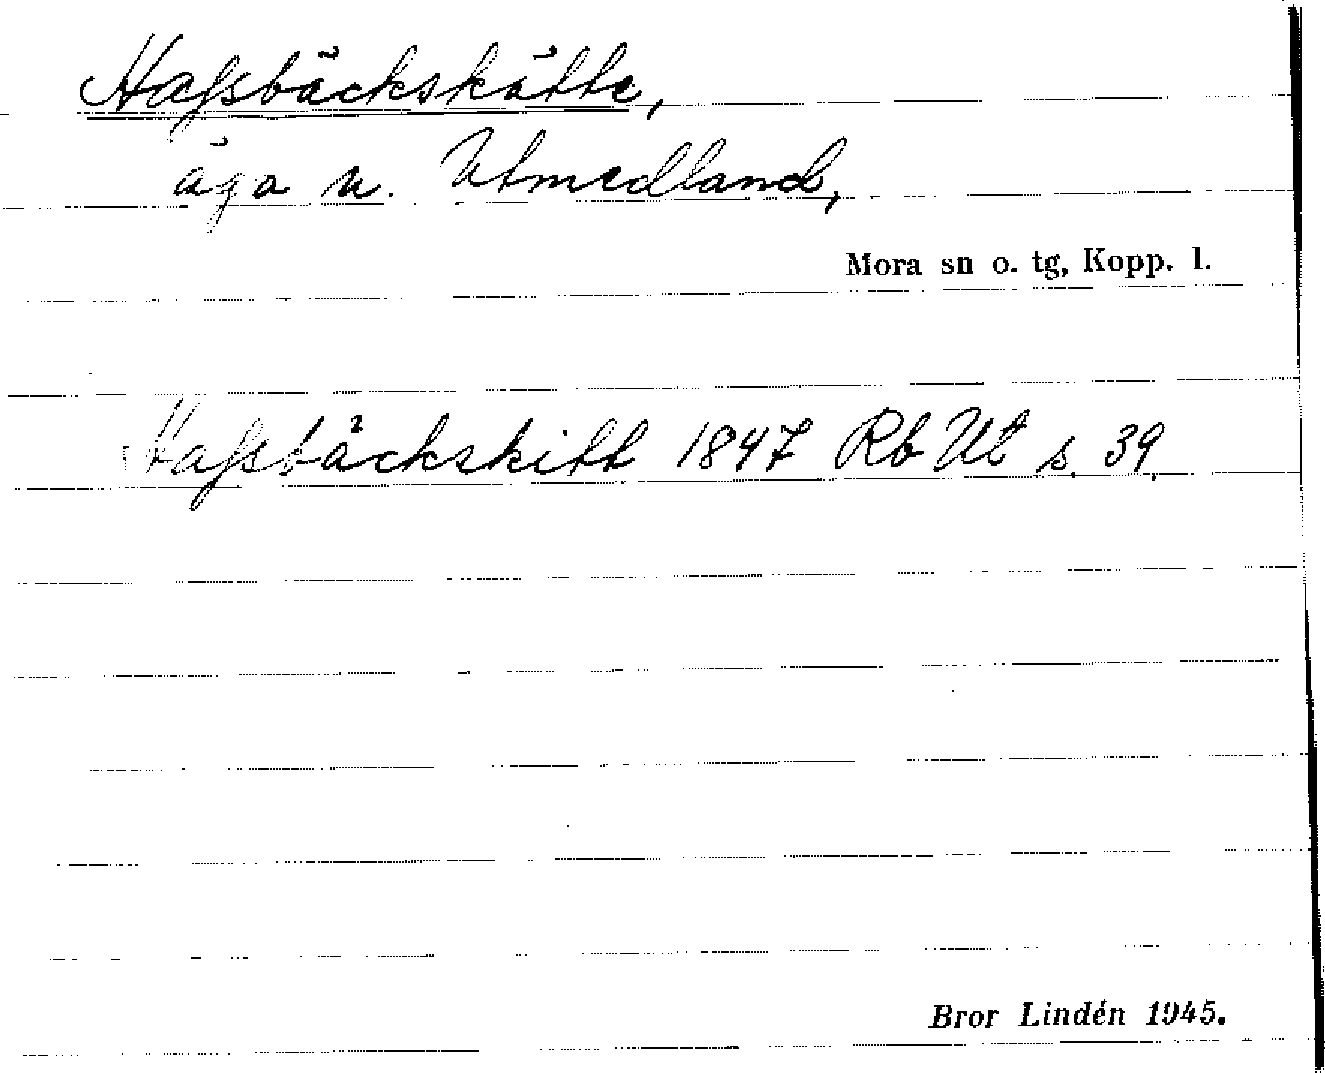 Hafsbäckskätte,
äga u. Utmedland,
Mora sn o. tg, Kopp. l.
Hafsbäckskitt 1847 Rb Ut s. 39.
Bror Lindén 1945.